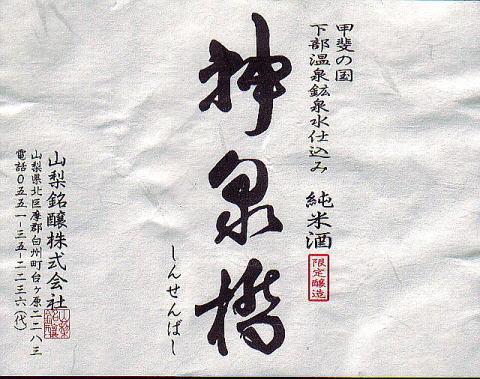 甲斐の国
下部温泉鉱泉水仕込み 純米酒
限定醸造
神泉橋
しんせんばし
山梨銘醸株式会社
山梨銘醸
山梨県北巨摩郡白州町台ヶ原二二八三
電話〇五五一-三五-二二三六(代)